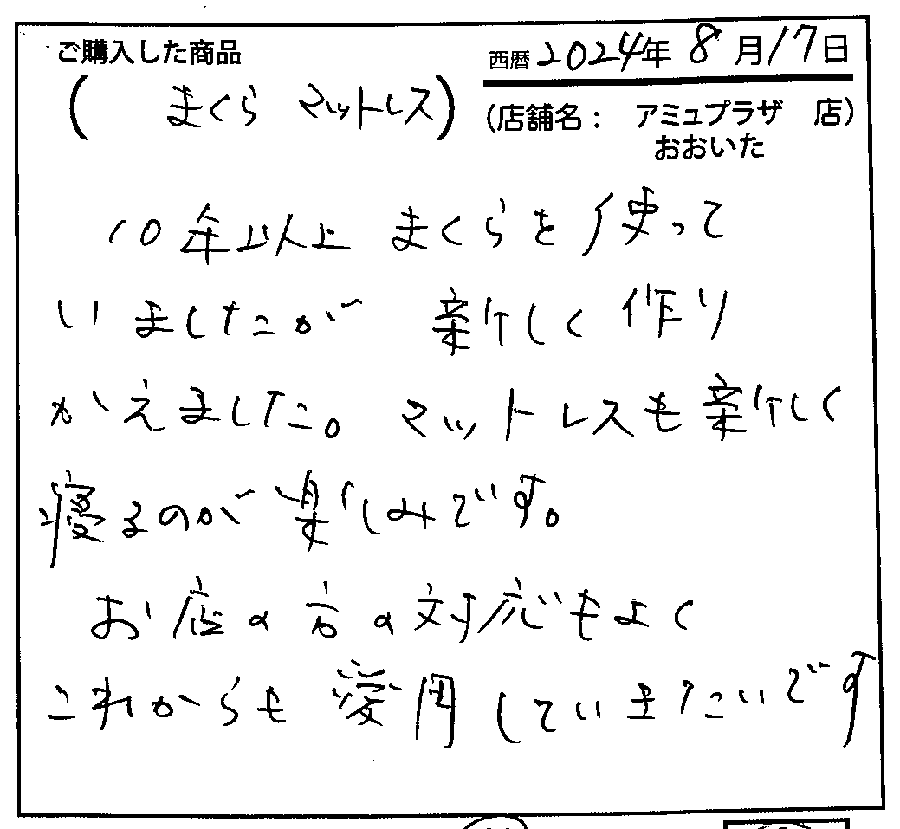 ご購入した商品
西暦 2024年 8月17日
( まくら マットレス)
(店舗名： アミュプラザ 店)
おおいた
10年以上 まくらを使って
いましたが 新しく作り
かえました。マットレスも新しく
寝るのが楽しみです。
お店の方の対応もよく
これからも愛用していきたいです